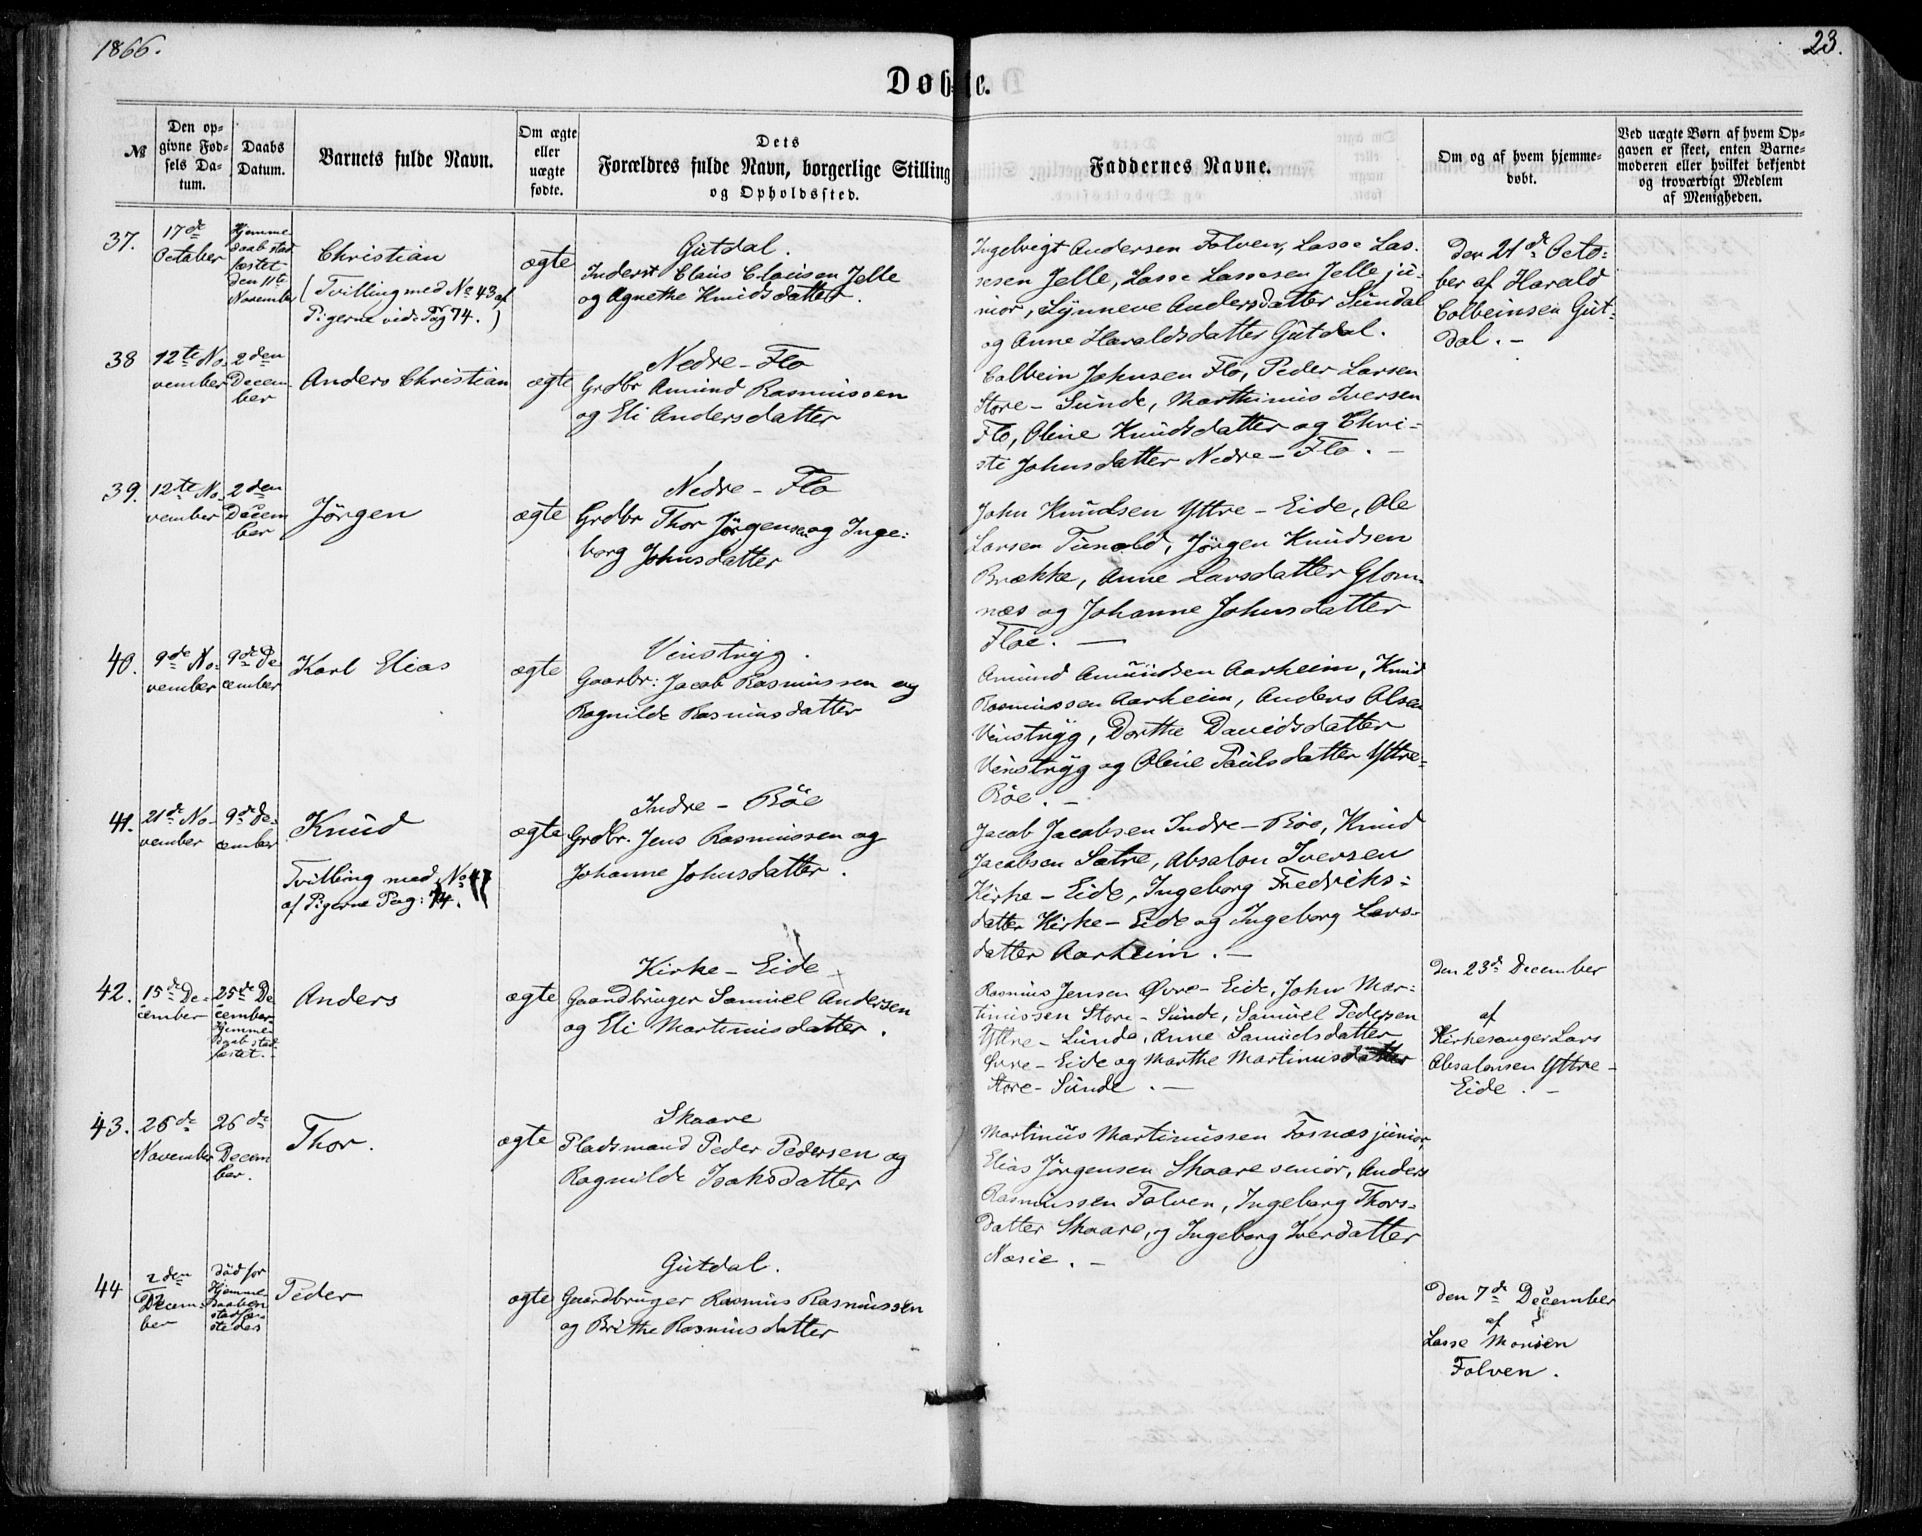 1866.
23.
Døbte.
№
Den op-
givne Fød-
sels Da-
tum.
Daabs
Datum.
Barnets fulde Navn.
Om ægte
eller
uægte
fødte.
Dets
Forældres fulde Navn, borgerlige Stilling
og Opholdssted.
Faddernes Navne.
Om og af hvem hjemme-
døbt.
Ved uægte Børn af hvem Op-
gaven er skeet, enten Barne-
moderen eller hvilket bekjendt
og troværdigt Medlem
af Menigheden.
37.
17de
October
Hjemme
daab stad
fæstet
den 11te
November
Christian
(Tvilling med No 43 af
Pigerne vide Pag 74.)
ægte
Gutdal.
Inderst Claus Clausen Jelle
og Agnethe Knudsdatter.
Ingelvigt Andersen Folven, Lasse Las-
sesen Jelle, Lasse Lassesen Jelle ju-
nior, Synneve Andersdatter Sundal
og Anne Haraldsdatter Gutdal.
Den 21de Octo-
ber af Harald
Colbeinsen Gut-
dal. -
38
12te No-
vember
2den
Decem-
ber
Anders Christian
ægte
Nedre - Flo
Grdbr Amund Rasmussen
og Eli Andersdatter
Colbein Johnsen Flo, Peder Larsen
Store - Sunde, Marthinus Iversen
Flo, Oline Knudsdatter og Chri-
sti Johnsdatter Nedre - Flo. -
39.
12te No-
vember
2den
Decem
ber
Jörgen
ægte
Nedre - Flo
Grdbr Thor Jörgensen og Inge-
borg Johnsdatter
John Knudsen Yttre - Eide, Ole
Larsen Tunold, Jörgen Knudsen
Brække, Anne Larsdatter Glom-
næs og Johanne Johnsdatter
Floe. -
40.
9de No-
vember
9de De-
cember
Karl Elias
ægte
Vinstryg.
Gaarbr: Jacob Rasmussen og
Ragnilde Rasmusdatter
Amund Amundsen Aarheim, Knud
Rasmussen Aarheim, Anders Olsen
Vinstryg, Dorthe Davidsdatter
Vinstryg og Oline Paulsdatter Yttre-
Böe. -
41.
21de No-
vember
9de De-
cember
Knud
Tvilling med No 47
af Pigerne Pag: 74.
ægte
Indre - Böe
Grdbr. Jens Rasmussen og
Johanne Johnsdatter.
Jacob Jacobsen Indre - Böe, Knud
Jacobsen Sætre, Absalon Iversen
Kirke - Eide, Ingeborg Fredriks-
datter Kirke - Eide og Ingeborg Lars-
datter Aarheim. -
42.
15de De-
cember
25de De
cember
Hjemme-
daab stad
fæstet. -
Anders
ægte
Kirke - Eide
Gaardbruger Samuel Andersen
og Eli Martinusdatter.
Rasmus Jensen Øvre - Eide, John Mar-
tinussen Store - Sunde, Samuel Pedersen
Yttre - Sunde, Anne Samuelsdatter
Øvre - Eide og Marthe Martinusdatter
Store - Sunde. -
Den 23de December
af
Kirkesanger Lars
Absalonsen Yttre -
Eide. -
43.
26de
November
26de
Decem
ber.
Thor.
ægte
Skaare
Pladsmand Peder Pedersen og
Ragnilde Isaksdatter
Martinus Martinussen Fosnæs junior,
Elias Jörgensen Skaare senior, Anders
Rasmussen Folven, Ingeborg Thors-
datter Skaare, og Ingeborg Iverdatter
Næsie. -
44
2den
Decem-
ber
Död for
Hjemme
daaben
stadfæ-
stedes
Peder
ægte
Gutdal.
Gaardbruger Rasmus Rasmussen
og Brithe Rasmusdatter
Den 7de December
af
Lasse Monsen
Folven.